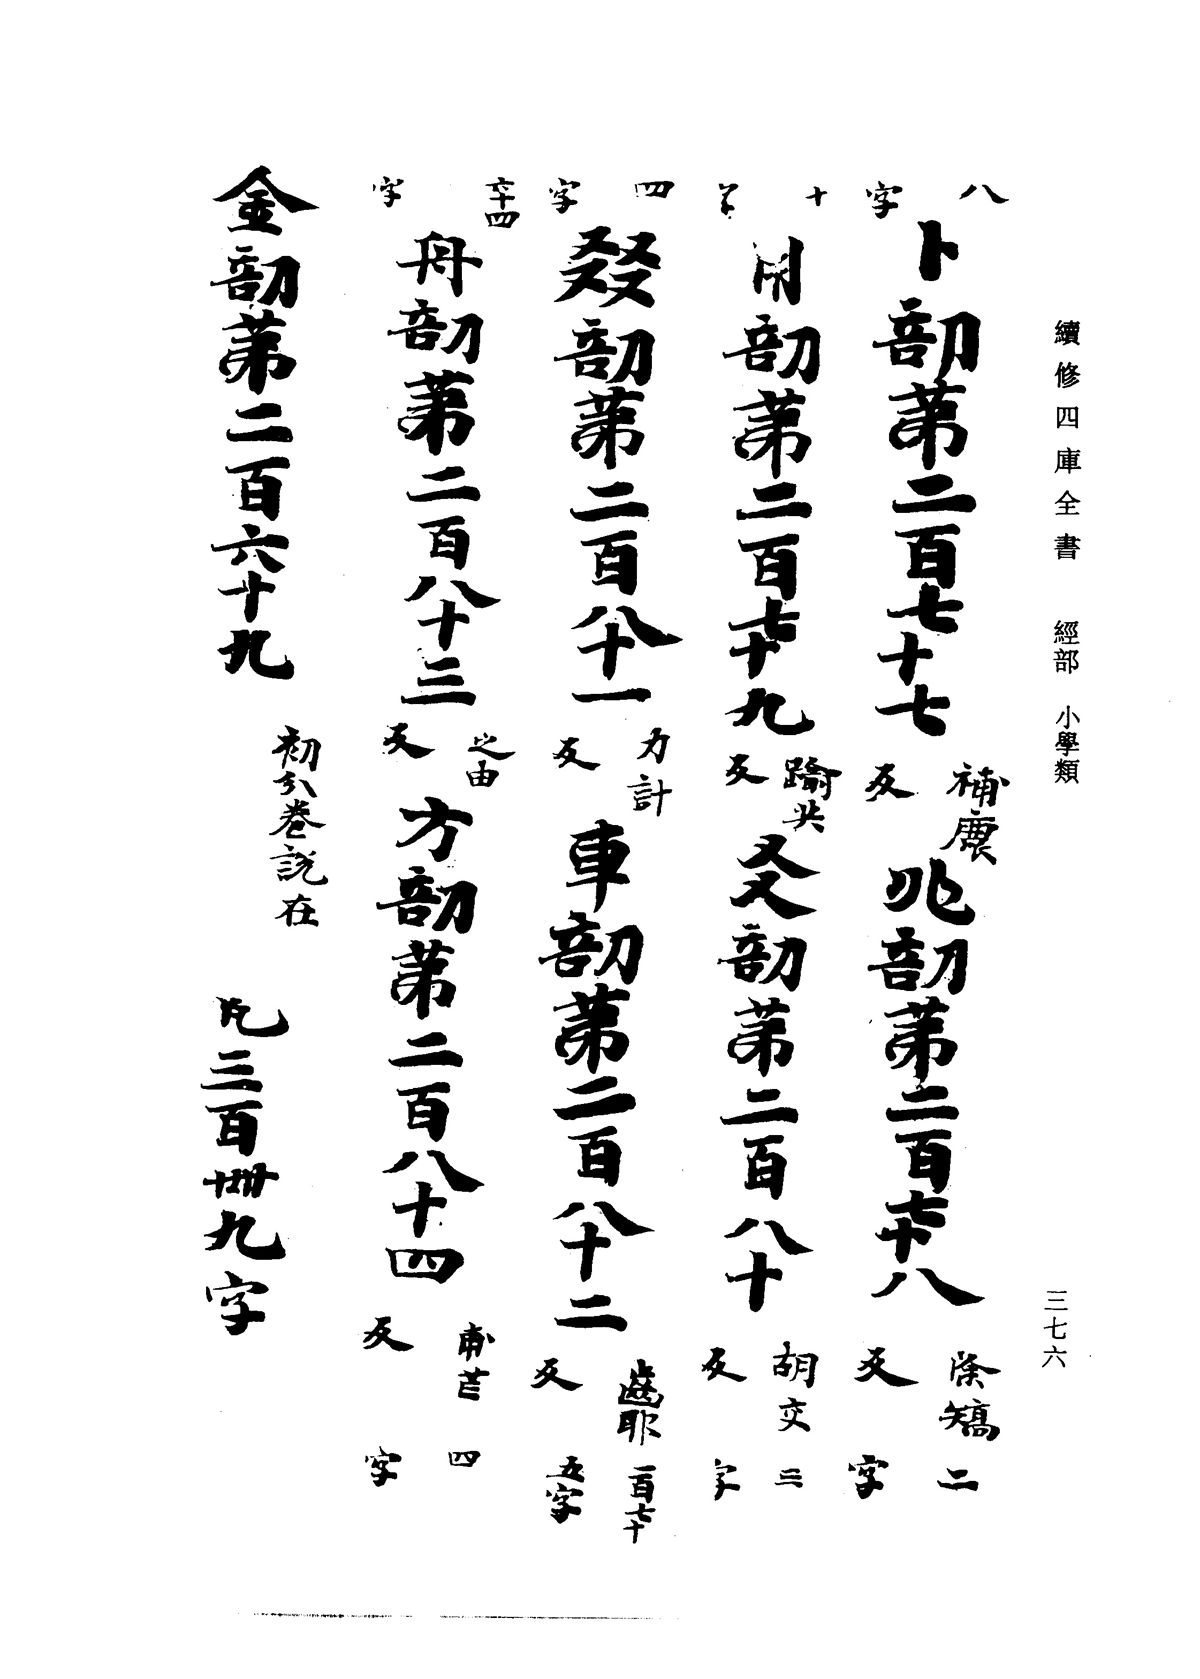 續修四庫全書 經部 小學類
三七六
八字 卜部第二百七十七 補鹿反 兆部第二百七十八 除矯反 二字
十字 用部第二百七十九 踰共反 爻部第二百八十 胡交反 三字
四字 㸚部第二百八十一 力計反 車部第二百八十二 齒耶反 一百七十五字
六十四字 舟部第二百八十三 之由反 方部第二百八十四 甫芒反 四字
金部第二百六十九 初分卷說在 凡三百卌九字